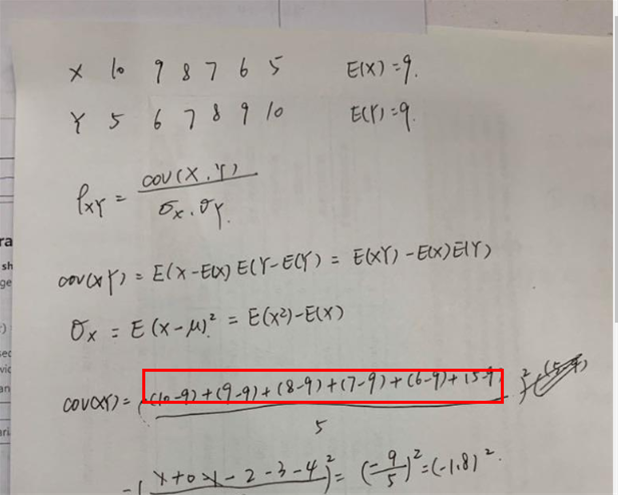 X 10 9 8 7 6 5 E(X)=9.
Y 5 6 7 8 9 10 E(Y)=9.
ρxy = cov(X.Y) / σx.σY.
cov(xY) = E(X-E(X)E(Y-E(Y) = E(XY)-E(X)E(Y)
σx = E(x-μ)² = E(x²)-E(X)
cov(XY) = ((10-9)+(9-9)+(8-9)+(7-9)+(6-9)+(5-9 / 5)²
-2-3-4)² = (-9/5)² = (-1.8)².